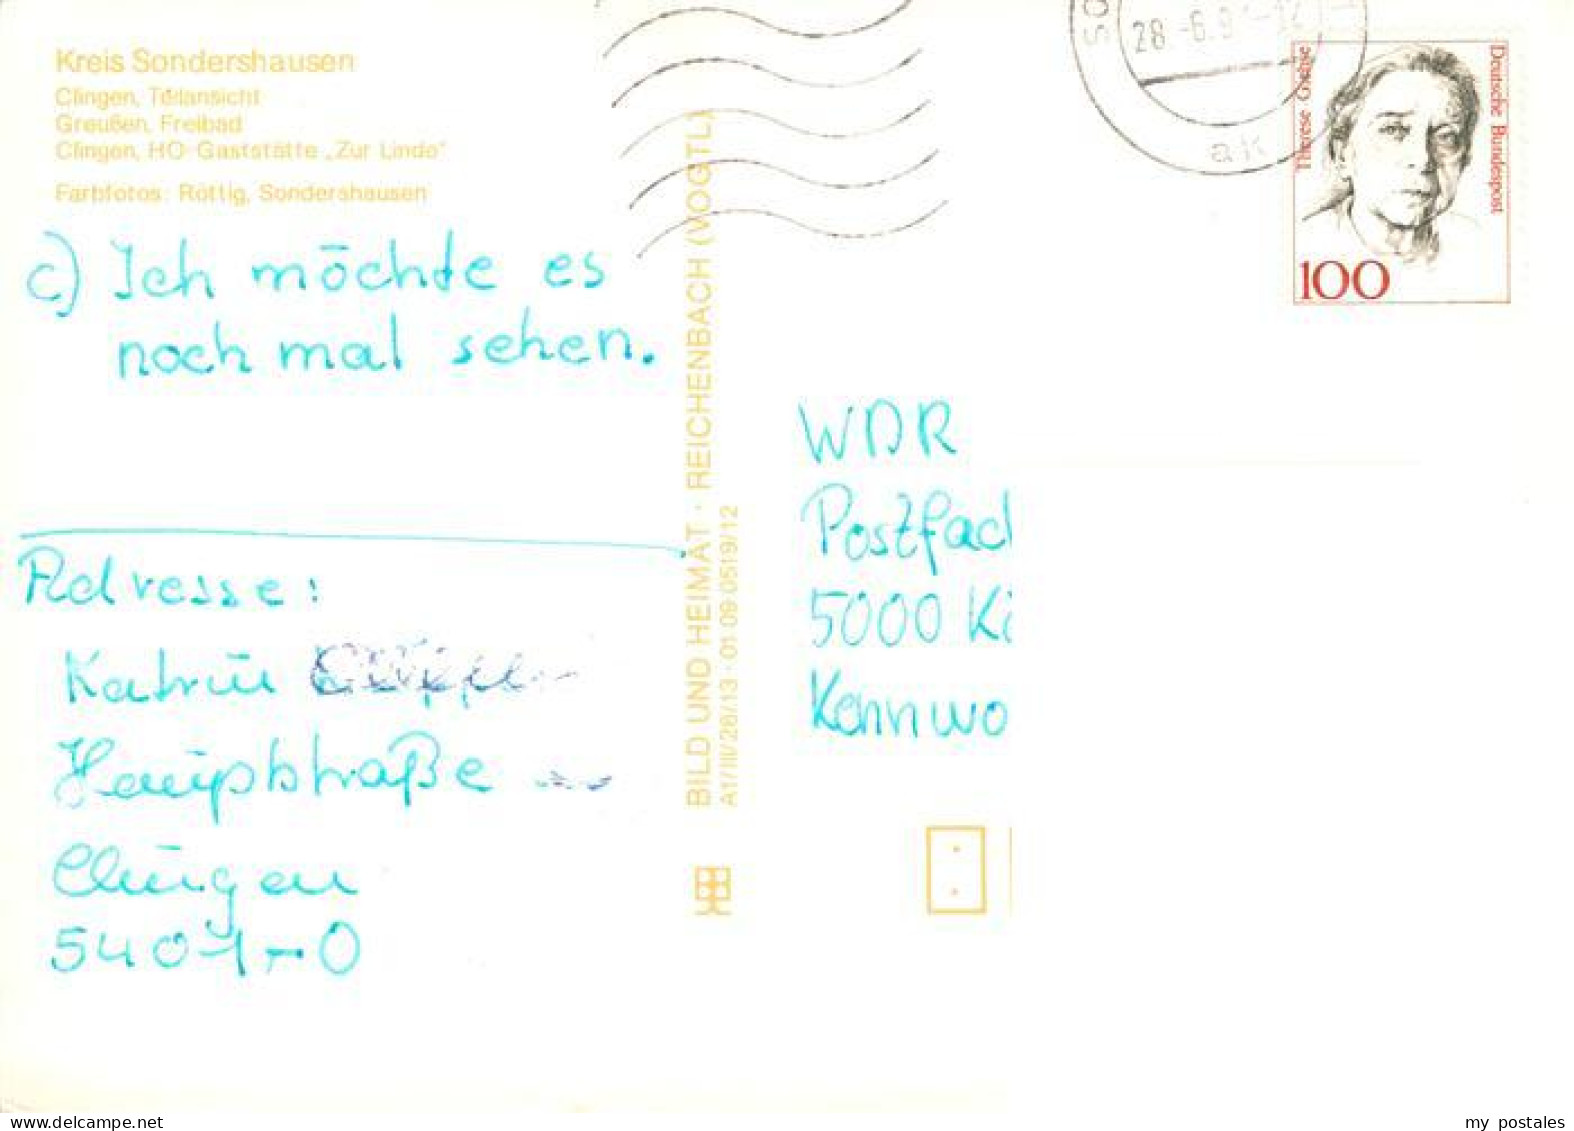 Kreis Sondershausen
Clingen, Teilansicht
Greußen, Freibad
Clingen, HO-Gaststätte „Zur Linde"
Farbfotos: Röttig, Sondershausen
c) Ich möchte es
noch mal sehen.
Adresse:
Katrin
Hauptstraße
Clingen
5401-O
BILD UND HEIMAT · REICHENBACH (VOGTL)
A1/III/26/13 · 01 09 0519/12
28 -6.9
ak
Therese Giehse
Deutsche Bundespost
100
WDR
Postfach
5000 Kö
Kennwo
my postales